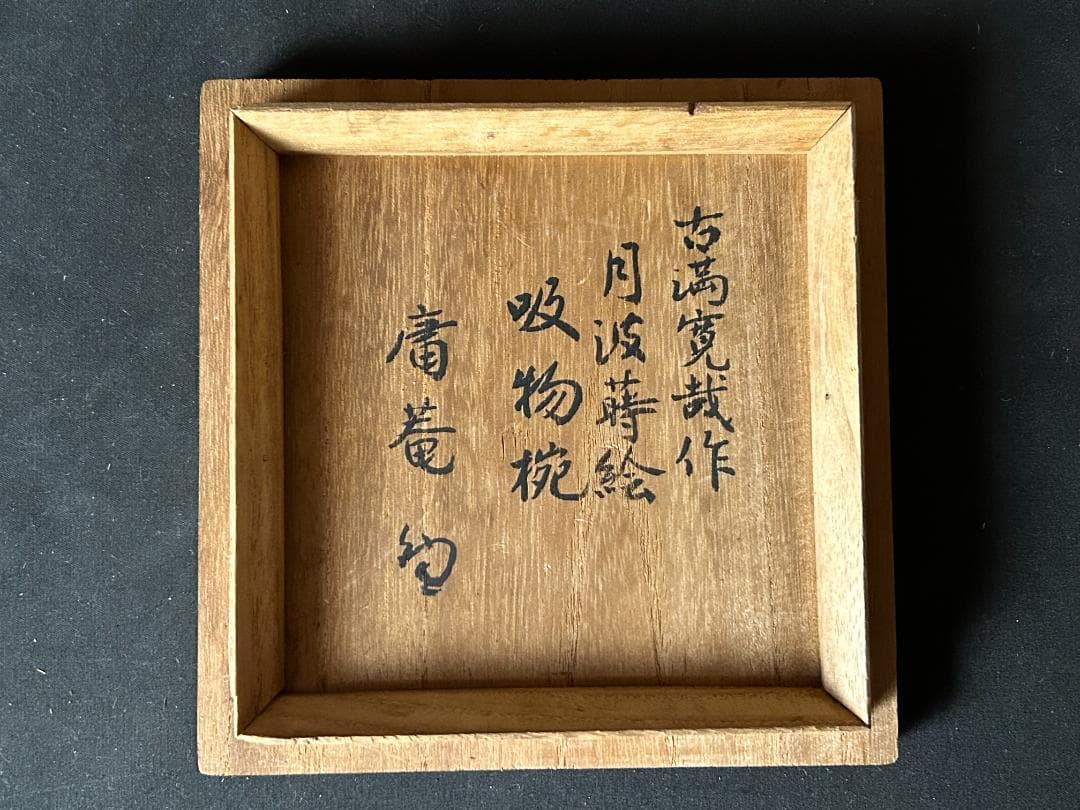 古満寛哉作
月波蒔絵
吸物椀
庸菴